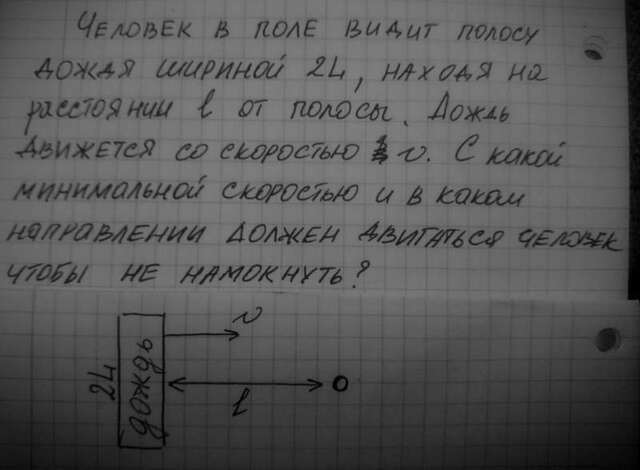 Человек в поле видит полосу
дождя шириной 2L, находя на
расстоянии l от полосы. Дождь
движется со скоростью v. С какой
минимальной скоростью и в каком
направлении должен двигаться человек
чтобы не намокнуть?
v
2L
дождь
l